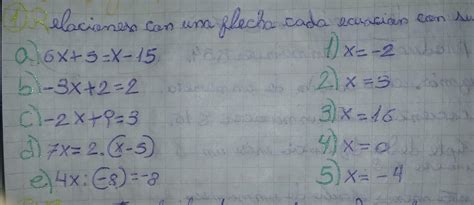 1) Relacionen con una flecha cada ecuación con su
a) 6x+5=x-15 1) x=-2
b) -3x+2=2 2) x=3
c) -2x+9=3 3) x=16
d) 7x=2.(x-5) 4) x=0
e) 4x:(-8)=-8 5) x=-4